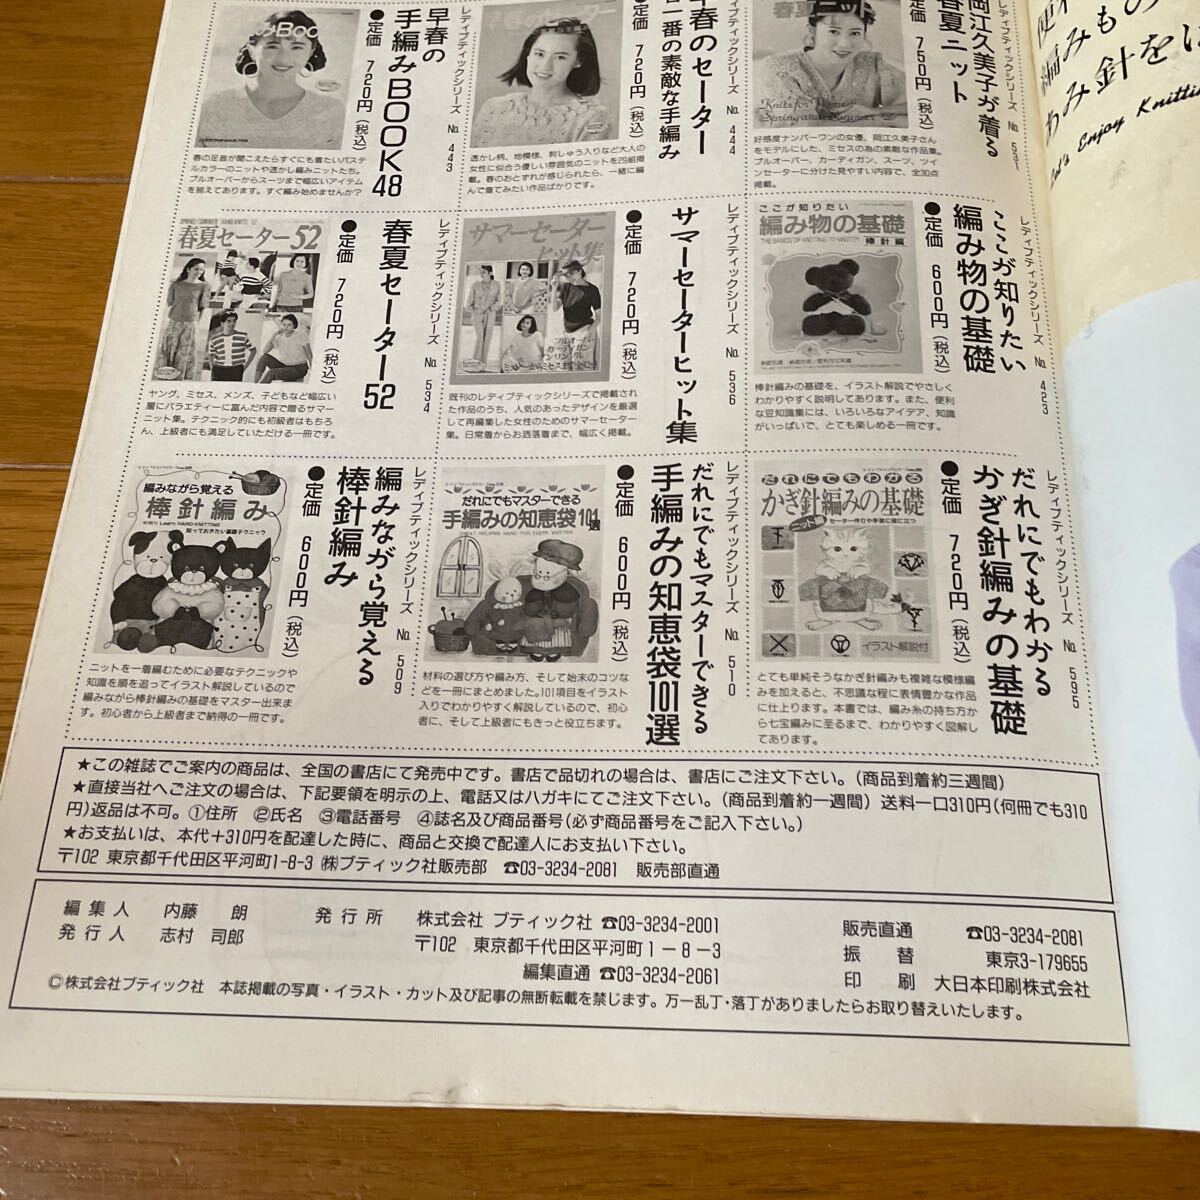 早春の
手編みBOOK48
レディブティックシリーズ No.443
●定価 720円(税込)
春の足音が聞こえたらすぐにも着たいパステ
ルカラーのニットや透かし編みニットたち。
プルオーバーからスーツまで幅広いアイテム
を揃えてあります。すぐ編み始めませんか?
早春のセーター
一番の素敵な手編み
レディブティックシリーズ No.444
720円(税込)
透かし柄、地模様、刺しゅう入りなど大人の
女性に似合う優しい雰囲気のニットを四組掲
載。春のおとずれが感じられたら、一緒に編
んで着てみたい作品ばかりです。
岡江久美子が着る
春夏ニット
レディブティックシリーズ No.531
750円(税込)
春夏ニット
Knits for Women
Spring and Summer
好感度ナンバーワンの女優、岡江久美子さん
をモデルにした、ミセスの為の素敵な作品集。
プルオーバー、カーディガン、スーツ、ツイ
ンセーターに分けた見やすい内容で、全30点
掲載。
編みもの
あみ針を
Let's Enjoy Knitting
春夏セーター52
レディブティックシリーズ No.534
●定価 720円(税込)
SPRING/SUMMER HAND-KNITS 52
春夏セーター52
ヤング、ミセス、メンズ、子どもなど幅広い
層にバラエティーに富んだ内容で贈るサマー
ニット集。テクニック的にも初級者はもちろ
ん、上級者にも満足していただける一冊です。
サマーセーターヒット集
レディブティックシリーズ No.536
●定価 720円(税込)
サマーセーター
ヒット集
既刊のレディブティックシリーズで掲載され
た作品のうち、人気のあったデザインを厳選
して再編集した女性のためのサマーセーター
集。日常着からお洒落着まで、幅広く掲載。
ここが知りたい
編み物の基礎
レディブティックシリーズ No.423
●定価 600円(税込)
ここが知りたい
編み物の基礎
THE BASICS OF KNITTING TO MASTER
棒針編
棒針編みの基礎を、イラスト解説でやさしく
わかりやすく説明してあります。また、便利
な豆知識集には、いろいろなアイデア、知識
がいっぱいで、とても楽しめる一冊です。
編みながら覚える
棒針編み
レディブティックシリーズ No.509
●定価 600円(税込)
編みながら覚える
棒針編み
知っておきたい基礎テクニック
ニットを一着編むために必要なテクニックや
知識を順を追ってイラスト解説しているので
編みながら棒針編みの基礎をマスター出来ま
す。初心者から上級者まで納得の一冊です。
だれにでもマスターできる
手編みの知恵袋101選
レディブティックシリーズ No.510
●定価 600円(税込)
だれにでもマスターできる
手編みの知恵袋101選
材料の選び方や編み方、そして始末のコツな
どを一冊にまとめました。101項目をイラスト
入りでわかりやすく解説しているので、初心
者に、そして上級者にもきっと役立ちます。
だれにでもわかる
かぎ針編みの基礎
レディブティックシリーズ No.595
●定価 720円(税込)
だれにでもわかる
かぎ針編みの基礎
ニット編
セーター作りや手芸に役に立つ
イラスト解説付
とても単純そうなかぎ針編みも複雑な模様編
みを加えると、不思議な程に表情豊かな作品
に仕上ります。本書では、編み糸の持ち方か
ら七宝編みに至るまで、わかりやすく図解し
てあります。
★この雑誌でご案内の商品は、全国の書店にて発売中です。書店で品切れの場合は、書店にご注文下さい。(商品到着約三週間)
★直接当社へご注文の場合は、下記要領を明示の上、電話又はハガキにてご注文下さい。(商品到着約一週間) 送料一口310円(何冊でも310
円)返品は不可。①住所 ②氏名 ③電話番号 ④誌名及び商品番号(必ず商品番号をご記入下さい。)
★お支払いは、本代+310円を配達した時に、商品と交換で配達人にお支払い下さい。
〒102 東京都千代田区平河町1-8-3 ㈱ブティック社販売部 ☎03-3234-2081 販売部直通
編集人 内藤 朗
発行人 志村 司郎
発行所 株式会社 ブティック社 ☎03-3234-2001
〒102 東京都千代田区平河町1-8-3
編集直通 ☎03-3234-2061
販売直通 ☎03-3234-2081
振替 東京3-179655
印刷 大日本印刷株式会社
©株式会社ブティック社 本誌掲載の写真・イラスト・カット及び記事の無断転載を禁じます。万一乱丁・落丁がありましたらお取り替えいたします。